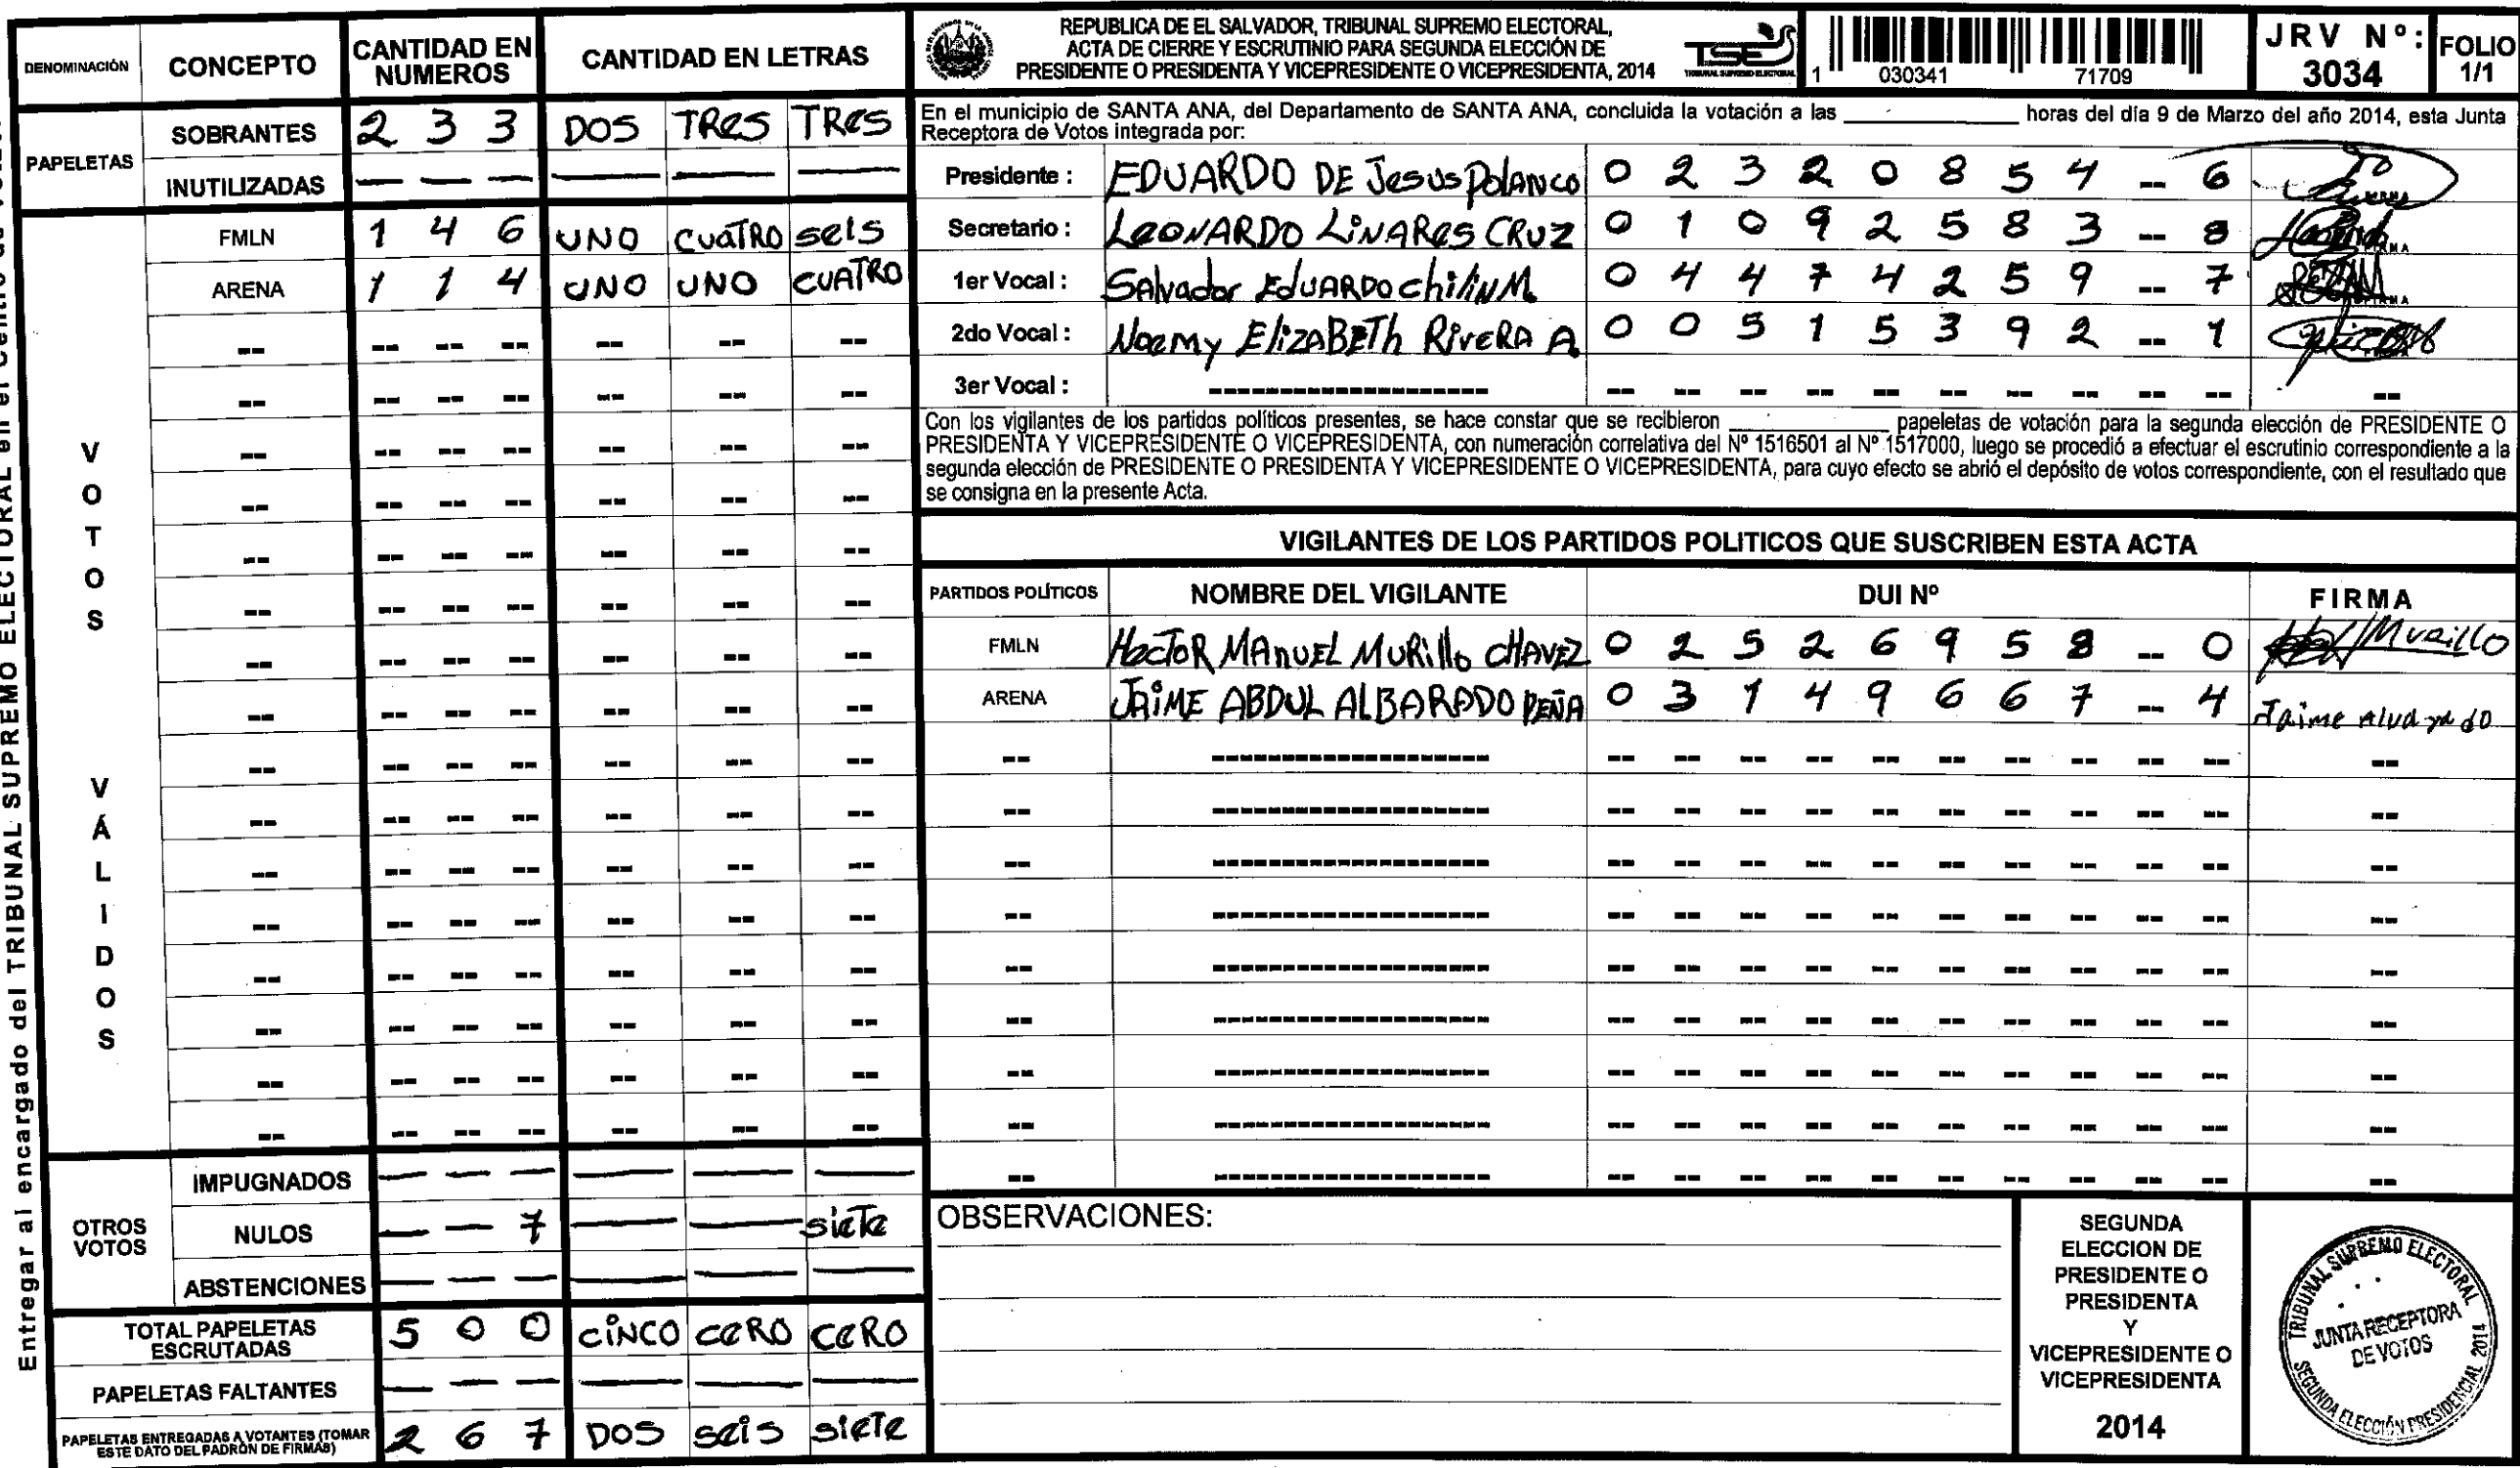 Entregar al encargado del TRIBUNAL SUPREMO ELECTORAL en el Centro de
DENOMINACIÓN CONCEPTO CANTIDAD EN NUMEROS CANTIDAD EN LETRAS
PAPELETAS
SOBRANTES 2 3 3 DOS TRES TRES
INUTILIZADAS — — — — — —
VOTOS VÁLIDOS
FMLN 1 4 6 UNO CUATRO SEIS
ARENA 1 1 4 UNO UNO CUATRO
OTROS VOTOS
IMPUGNADOS — — — — — —
NULOS — — 7 — — SIETE
ABSTENCIONES — — — — — —
TOTAL PAPELETAS ESCRUTADAS 5 0 0 CINCO CERO CERO
PAPELETAS FALTANTES — — — — — —
PAPELETAS ENTREGADAS A VOTANTES (TOMAR ESTE DATO DEL PADRÓN DE FIRMAS) 2 6 7 DOS SEIS SIETE
REPUBLICA DE EL SALVADOR, TRIBUNAL SUPREMO ELECTORAL,
ACTA DE CIERRE Y ESCRUTINIO PARA SEGUNDA ELECCIÓN DE
PRESIDENTE O PRESIDENTA Y VICEPRESIDENTE O VICEPRESIDENTA, 2014
TSE
TRIBUNAL SUPREMO ELECTORAL
1 030341 71709
JRV Nº: 3034
FOLIO 1/1
En el municipio de SANTA ANA, del Departamento de SANTA ANA, concluida la votación a las ____ horas del día 9 de Marzo del año 2014, esta Junta
Receptora de Votos integrada por:
Presidente : EDUARDO DE JESUS POLANCO 0 2 3 2 0 8 5 4 -- 6
Secretario : LEONARDO LINARES CRUZ 0 1 0 9 2 5 8 3 -- 8
1er Vocal : Salvador Eduardo Chilin M. 0 4 4 7 4 2 5 9 -- 7
2do Vocal : Noemy Elizabeth Rivera A. 0 0 5 1 5 3 9 2 -- 1
3er Vocal :
Con los vigilantes de los partidos políticos presentes, se hace constar que se recibieron ____ papeletas de votación para la segunda elección de PRESIDENTE O
PRESIDENTA Y VICEPRESIDENTE O VICEPRESIDENTA, con numeración correlativa del Nº 1516501 al Nº 1517000, luego se procedió a efectuar el escrutinio correspondiente a la
segunda elección de PRESIDENTE O PRESIDENTA Y VICEPRESIDENTE O VICEPRESIDENTA, para cuyo efecto se abrió el depósito de votos correspondiente, con el resultado que
se consigna en la presente Acta.
VIGILANTES DE LOS PARTIDOS POLITICOS QUE SUSCRIBEN ESTA ACTA
PARTIDOS POLÍTICOS NOMBRE DEL VIGILANTE DUI Nº FIRMA
FMLN HECTOR MANUEL MURILLO CHAVEZ 0 2 5 2 6 9 5 8 -- 0 Murillo
ARENA JAIME ABDUL ALBARADO PEÑA 0 3 1 4 9 6 6 7 -- 4 Jaime Alvarado
OBSERVACIONES:
SEGUNDA
ELECCION DE
PRESIDENTE O
PRESIDENTA
Y
VICEPRESIDENTE O
VICEPRESIDENTA
2014
TRIBUNAL SUPREMO ELECTORAL
JUNTA RECEPTORA
DE VOTOS
SEGUNDA ELECCIÓN PRESIDENCIAL 2014